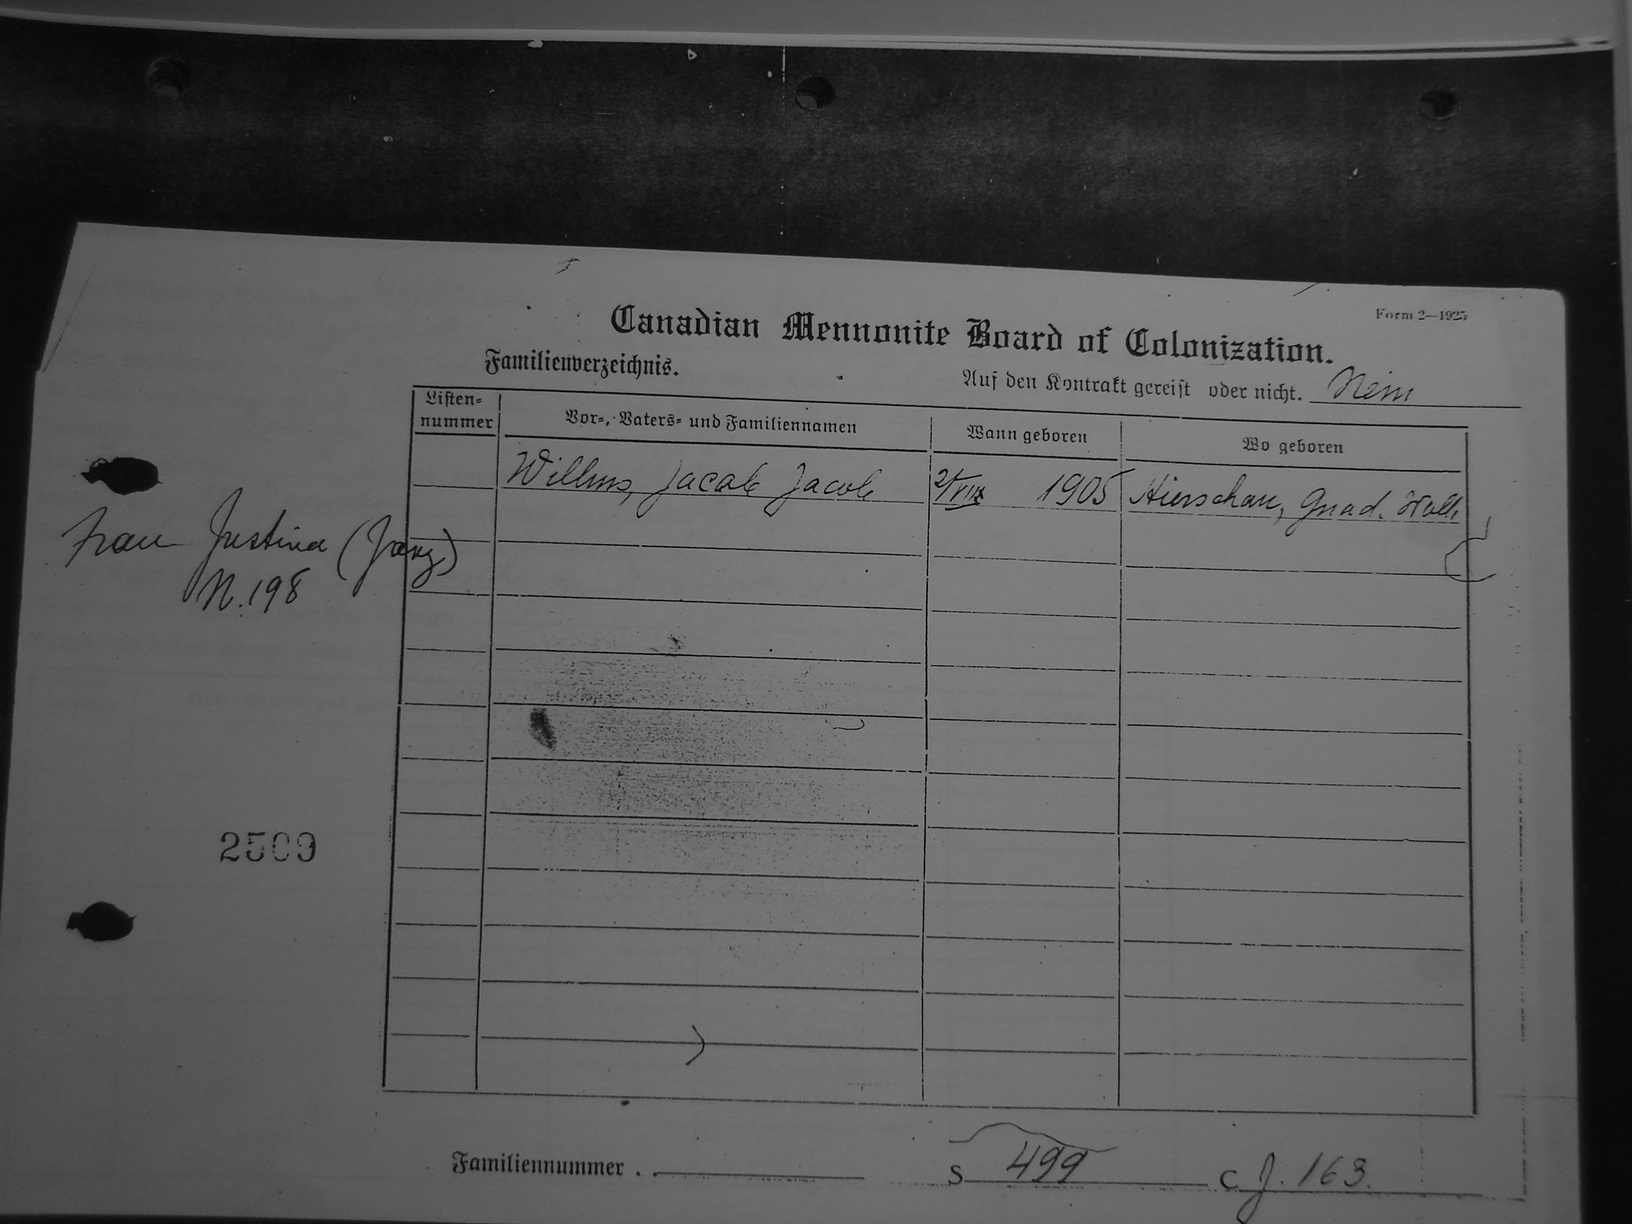 Form 2—1925
Canadian Mennonite Board of Colonization.
Familienverzeichnis.
Auf den Kontrakt gereist oder nicht. Nein
Listen=
nummer
Vor=, Vaters= und Familiennamen
Wann geboren
Wo geboren
Willms, Jacob Jacob
2/VIII 1905
Hierschau, Gnad. Wolh.
Frau Justina (Janz)
N. 198
2509
Familiennummer . .
S 499
C J. 163.